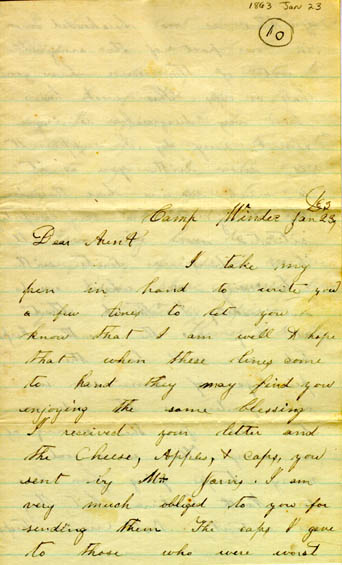 1863 Jan 23
10
/63
Camp Winder Jan 23,
Dear Aunt
I take my
pen in hand to write you
a few lines to let you
know that I am well & hope
that when these lines come
to hand they may find you
enjoying the same blessing
I received your letter and
the Cheese, Apples, & caps, you
sent by Mr Jarvis. I am
very much obliged to you for
sending them The caps I gave
to those who were worst